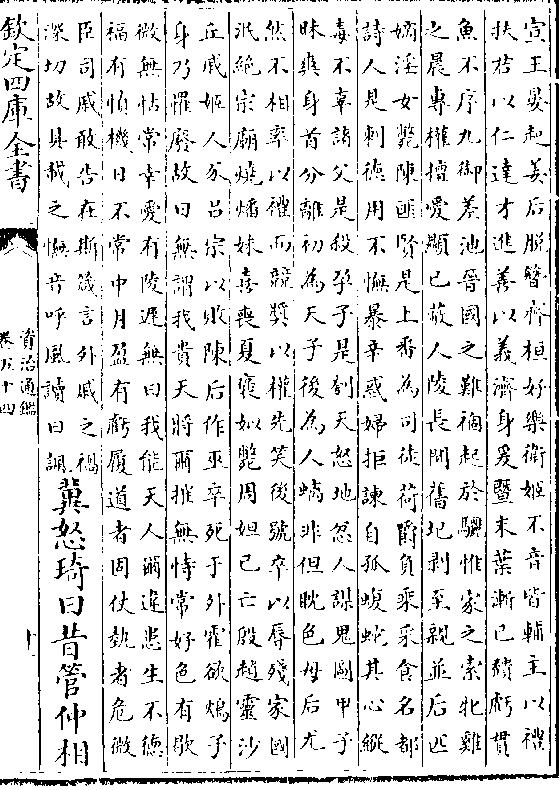 宣王晏起姜后脫簪齊桓好樂衛姬不音皆輔主以禮
扶君以仁達才進善以義濟身爰暨末葉漸已頹虧貫
魚不序九御差池晉國之難禍起於驪惟家之索牝雞
之晨專權擅愛顯已蔽人陵長間舊圮剥至親並后匹
嫡淫女斃陳匪賢是上番為司徒荷爵負乘采食名都
詩人是刺德用不憮暴辛惑婦拒諫自孤蝮蛇其心縱
毒不辜諸父是殺孕子是刳天怒地忿人謀鬼圖甲子
昧爽身首分離初為天子後為人螭非但耽色母后尤
然不相率以禮而競奨以權先笑後號卒以辱殘家國
泯絶宗廟燒燔妹喜喪夏褒姒斃周妲己亡殷趙靈沙
丘戚姬人豕呂宗以敗陳后作巫卒死于外霍欲鴆子
身乃罹廢故曰無謂我貴天將爾摧無恃常好色有歇
微無怙常幸愛有陵遲無曰我能天人爾違患生不德
福有慎機日不常中月盈有虧履道者固仗埶者危微
臣司戚敢告在斯箴言外戚之禍
深切故具載之憮音呼風讀曰諷
冀怒琦曰昔管仲相
欽定四庫全書
資治通鑑
卷五十四
十